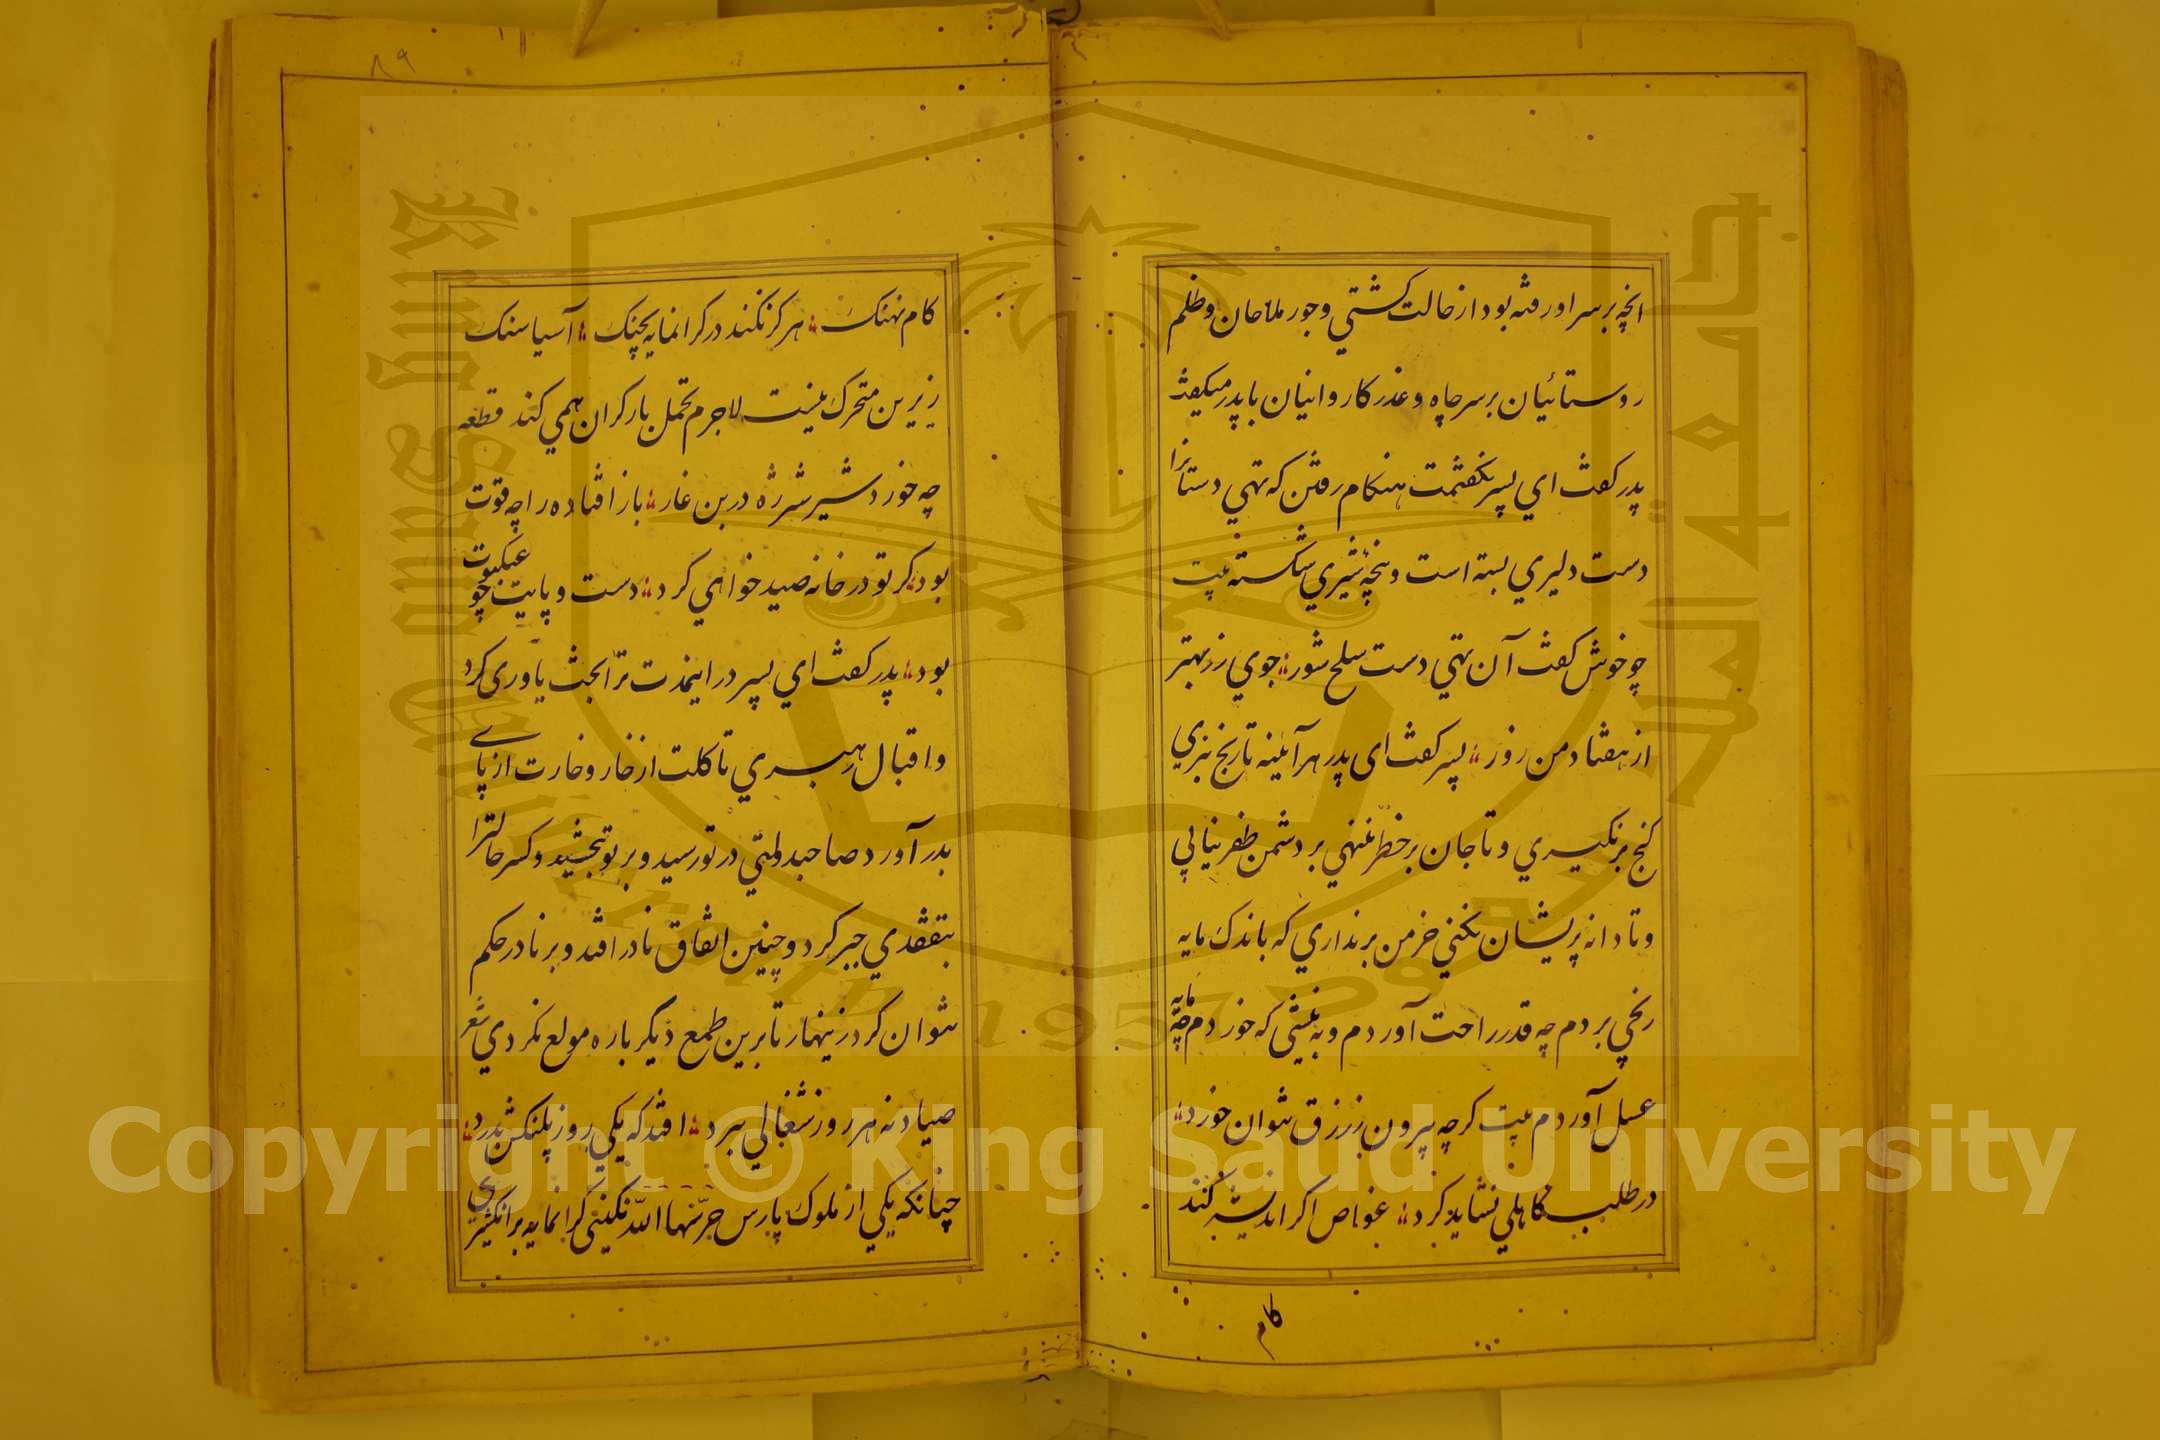 انچه بر سر او رفته بود از حالت کشتي و جور ملاحان و ظلم
روستائيان بر سر چاه و غدر کاروانيان با پدر ميکفت
پدر کفت اي پسر نکفتمت هنکام رفتن که تهي دستانرا
دست دليري بسته است و پنجه شيري شکسته بيت
چو خوش کفت آن تهي دست سلح شور جوي زر بهتر
از هفتاد من زور پسر کفت ای پدر هر آئينه تا رنج نبري
کنج برنکيري و تا جان بر خطر ننهي بر دشمن ظفر نيابي
و تا دانه پريشان نکني خرمن برنداري که باندك مايه
رنجي بردم چه قدر راحت آوردم و به نيشي که خوردم چه مايه
عسل آوردم بيت کرچه بيرون ز رزق نتوان خورد
در طلب کاهلي نشايد کرد غواص اکر انديشه کند
کام
۸۹
کام نهنك هرکز نکند در کرانمايه بچنك آسيا سنك
زيرين متحرك نيست لاجرم تحمل بار کران همي کند قطعه
چه خورد شير شرزه در بن غار باز افتاده را چه قوت
بود کر تو در خانه صيد خواهي کرد دست و پايت چو عنکبوت
بود پدر کفت اي پسر در اينمدت ترا بخت ياوری کرد
و اقبال رهبري تا کلت از خار و خارت از پاے
بدر آورد صاحبدولتي در تو رسيد و بر تو بخشيد و کسر حالترا
بتفقدي جبر کرد و چنين اتفاق نادر افتد و بر نادر حکم
نتوان کرد زينهار تا برين طمع ديگر باره مولع نکردي شعر
صياد نه هر روز شغالي ببرد افتد که يکي روز پلنکش بدرد
چنانکه يکي از ملوك پارس حرسها الله نکينی کرانمايه بر انکشتري
Copyright © King Saud University
King Saud University
جامعة الملك سعود
1957